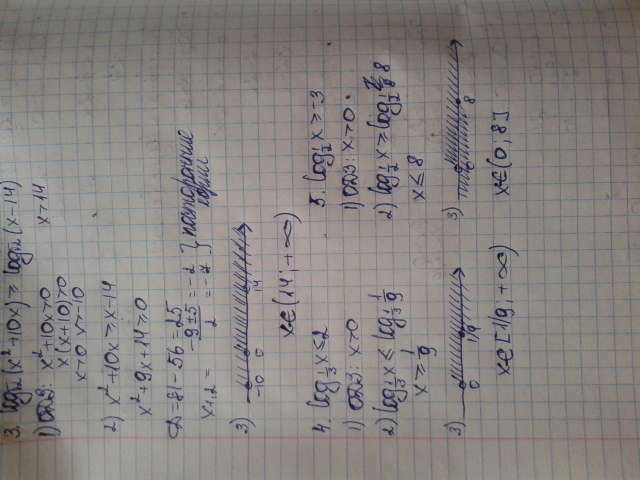 3. log√2 (x²+10x) ≥ log√2 (x-14)
1) ОДЗ: x²+10x>0 x>14
x(x+10)>0
x>0 x>-10
2) x²+10x ≥ x-14
x²+9x+14 ≥ 0
D=81-56=25
x1,2 = (-9±5)/2 = -2 = -7 } посторонние корни
3) -10 0 14
x∈(14; +∞)
4. log1/3 x ≤ 2
1) ОДЗ: x>0
2) log1/3 x ≤ log1/3 1/9
x ≥ 1/9
3) 0 1/9
x∈[1/9; +∞)
5. log1/2 x ≥ -3
1) ОДЗ: x>0.
2) log1/2 x ≥ log1/2 8
x ≤ 8
3) 0 8
x∈(0; 8]